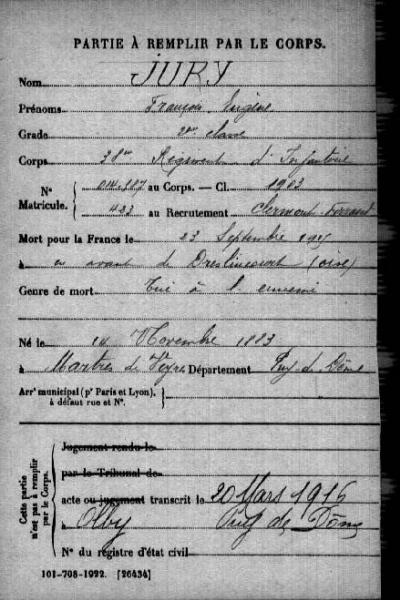 PARTIE À REMPLIR PAR LE CORPS.
Nom JURY
Prénoms François Eugène
Grade 2me classe
Corps 38me Régiment d'Infanterie
N° Matricule. { 014.587 au Corps. — Cl. 1903
433 au Recrutement Clermont Ferrand
Mort pour la France le 23 Septembre 1915
à en avant de Dreslincourt (oise)
Genre de mort Tué à l'ennemi
Né le 14 Novembre 1883
à Martres de Veyre Département Puy de Dôme
Arrt municipal (pr Paris et Lyon), à défaut rue et N°.
Cette partie n'est pas à remplir par le Corps.
Jugement rendu le
par le Tribunal de
acte ou jugement transcrit le 20 Mars 1916
à Olby Puy de Dôme
N° du registre d'état civil
101-708-1922. [26434]